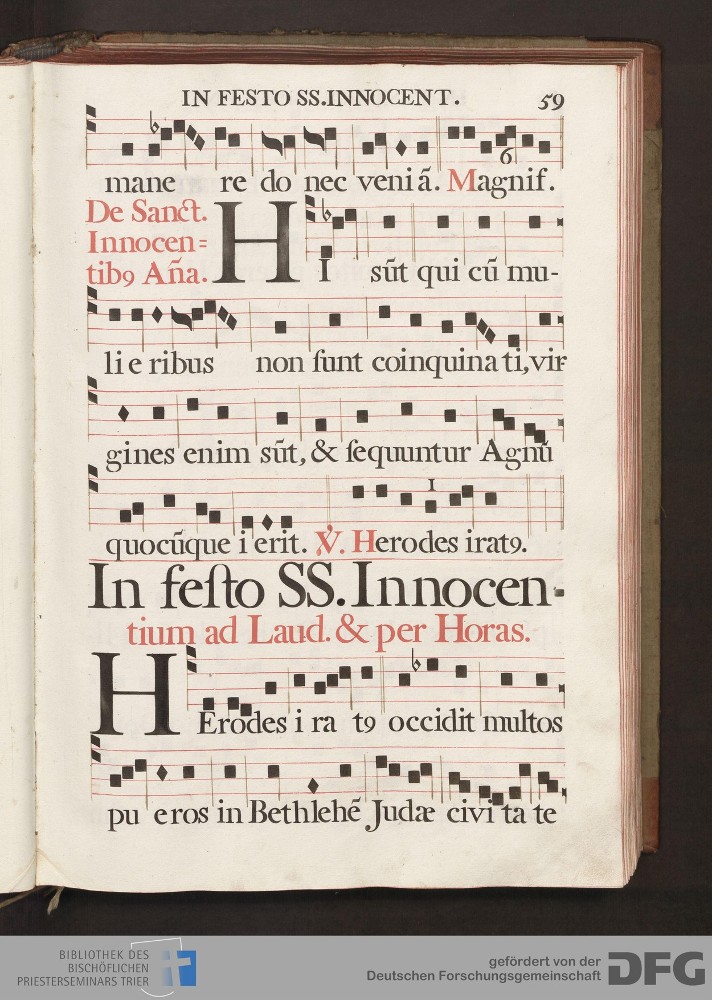 IN FESTO SS.INNOCENT. 59
6
mane re do nec veniā. Magnif.
De Sanct.
Innocen=
tibꝯ Aña.
HI sūt qui cū mu-
li e ribus non ſunt coinquina ti, vir-
gines enim sūt, & ſequuntur Agnū
1
quocūque i erit. ℣. Herodes iratꝯ.
In feſto SS. Innocen-
tium ad Laud. & per Horas.
HErodes i ra tꝯ occidit multos
pu eros in Bethlehē Judæ civi ta te
BIBLIOTHEK DES
BISCHÖFLICHEN
PRIESTERSEMINARS TRIER
gefördert von der
Deutschen Forschungsgemeinschaft
DFG